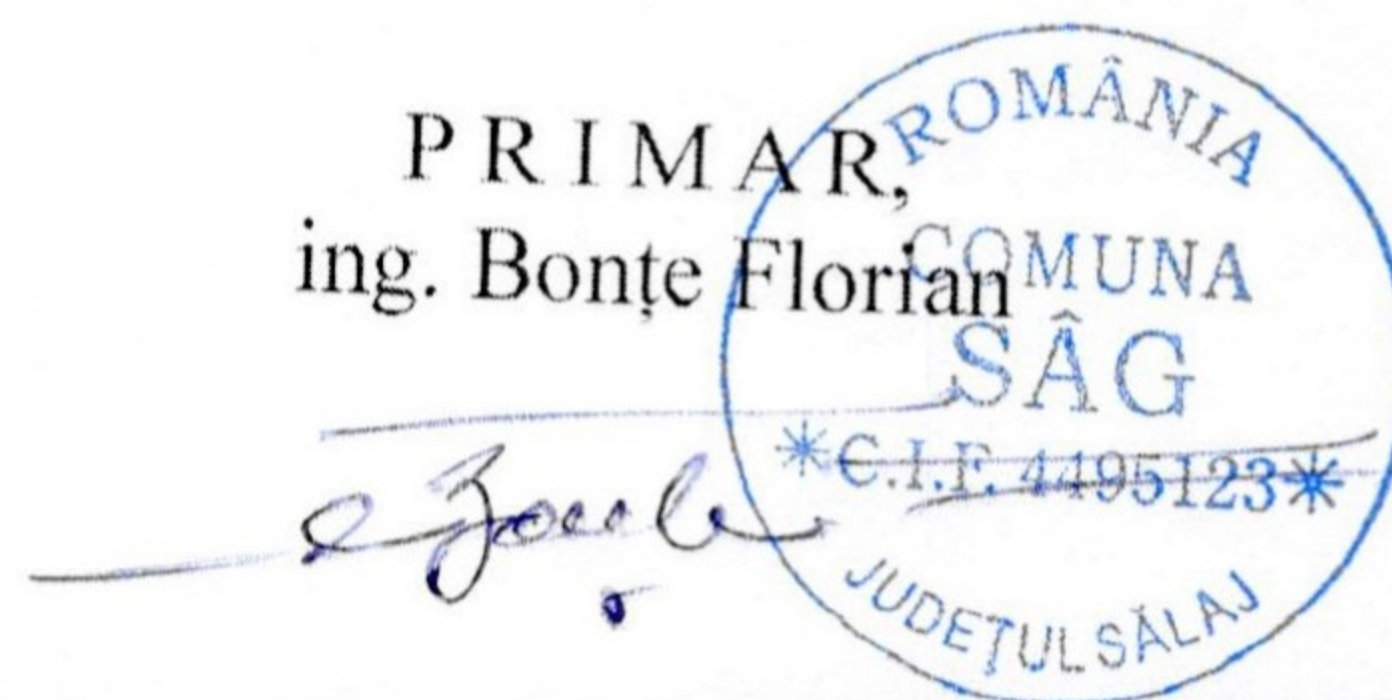 PRIMAR,
ing. Bonțe Florian
ROMÂNIA
COMUNA
SÂG
*C.I.F. 4495123*
JUDEȚUL SĂLAJ